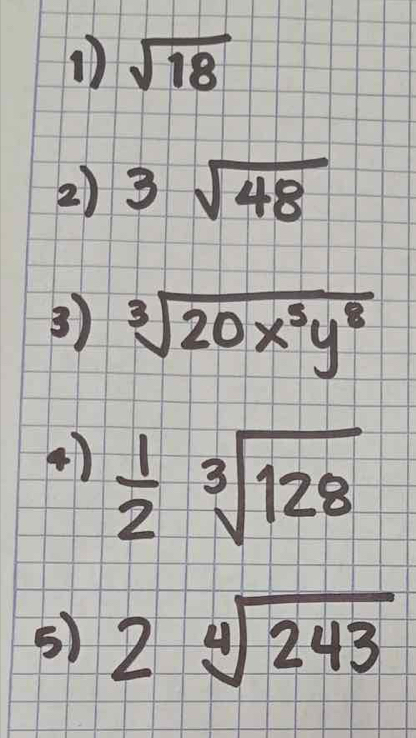 1) √18
2) 3 √48
3) ∛20x⁵y⁸
4) 1/2 ∛128
5) 2 ∜243